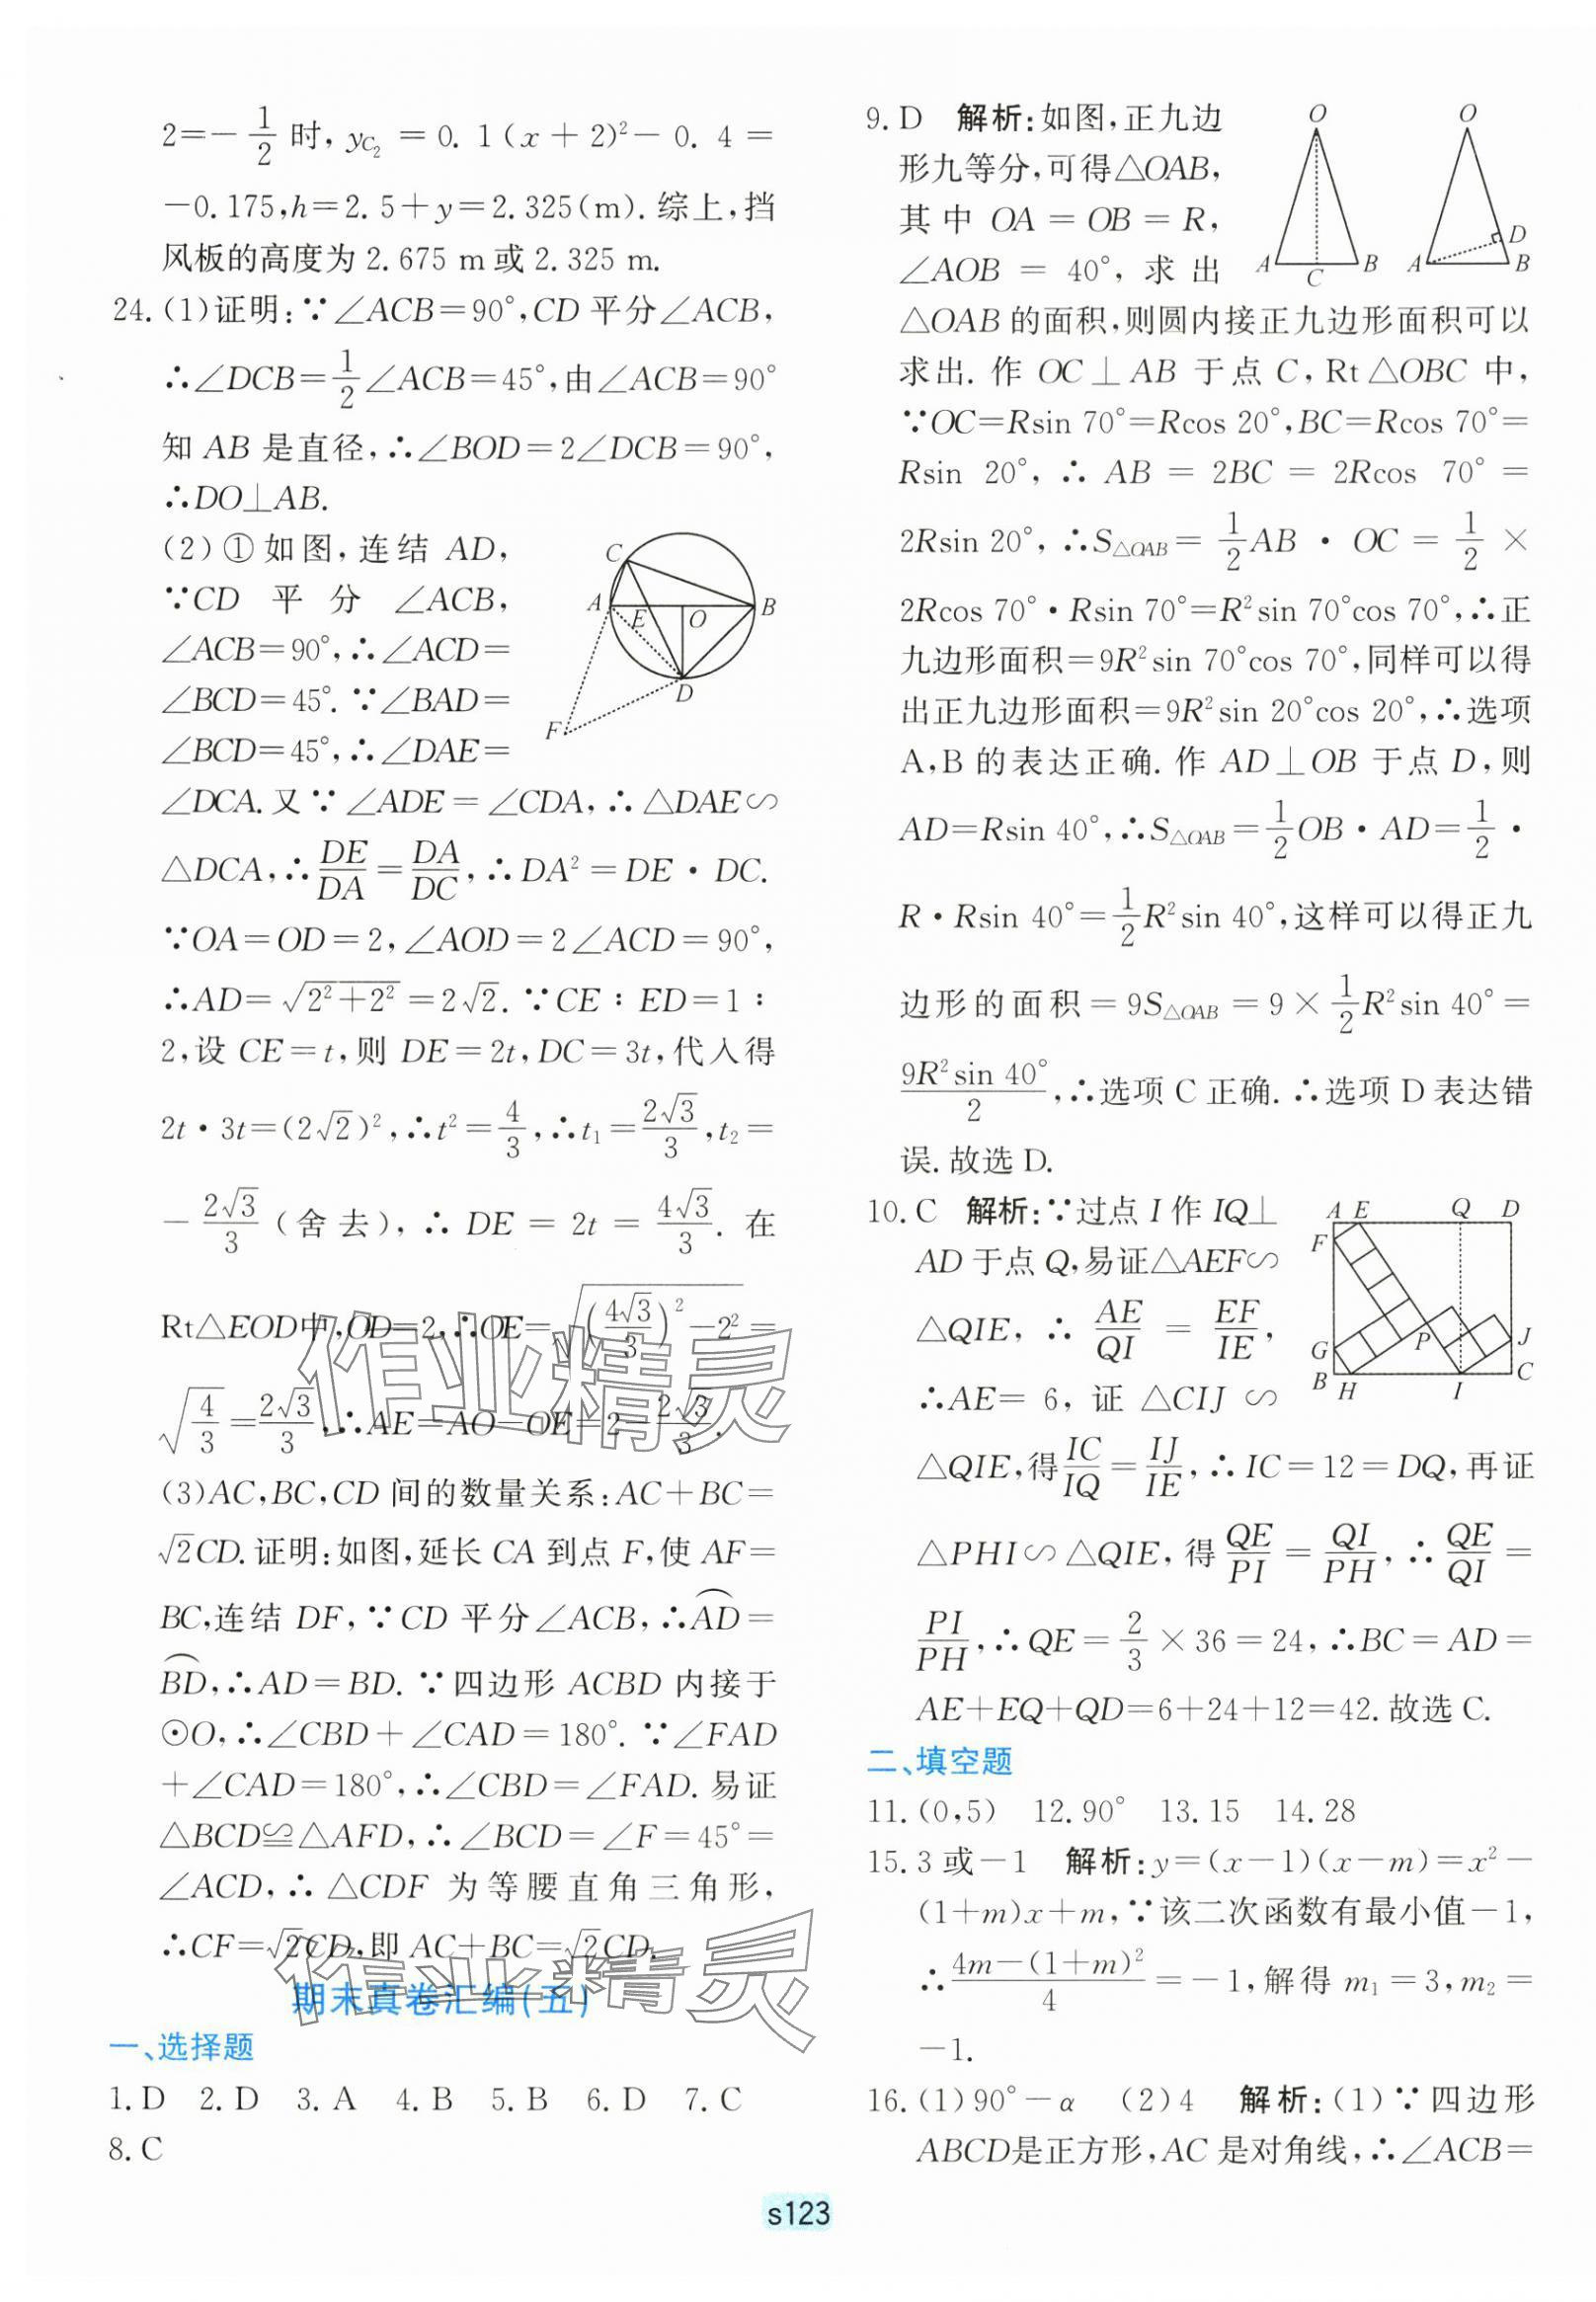 2=-1/2时,y_{C₂}=0.1(x+2)²-0.4=
-0.175,h=2.5+y=2.325(m).综上,挡
风板的高度为2.675 m或2.325 m.
24.(1)证明:∵∠ACB=90°,CD平分∠ACB,
∴∠DCB=1/2∠ACB=45°,由∠ACB=90°
知AB是直径,∴∠BOD=2∠DCB=90°,
∴DO⊥AB.
(2)①如图,连结AD,
∵CD平分∠ACB,
∠ACB=90°,∴∠ACD=
∠BCD=45°.∵∠BAD=
∠BCD=45°,∴∠DAE=
C
A
E
O
B
D
F
∠DCA.又∵∠ADE=∠CDA,∴△DAE∽
△DCA,∴DE/DA=DA/DC,∴DA²=DE·DC.
∵OA=OD=2,∠AOD=2∠ACD=90°,
∴AD=√(2²+2²)=2√2.∵CE∶ED=1∶
2,设CE=t,则DE=2t,DC=3t,代入得
2t·3t=(2√2)²,∴t²=4/3,∴t₁=2√3/3,t₂=
-2√3/3(舍去),∴DE=2t=4√3/3.在
Rt△EOD中,OD=2,∴OE=√((4√3/3)²-2²)=
√(4/3)=2√3/3,∴AE=AO-OE=2-2√3/3.
(3)AC,BC,CD间的数量关系:AC+BC=
√2CD.证明:如图,延长CA到点F,使AF=
BC,连结DF,∵CD平分∠ACB,∴⌒AD=
⌒BD,∴AD=BD.∵四边形ACBD内接于
⊙O,∴∠CBD+∠CAD=180°.∵∠FAD
+∠CAD=180°,∴∠CBD=∠FAD.易证
△BCD≌△AFD,∴∠BCD=∠F=45°=
∠ACD,∴△CDF为等腰直角三角形,
∴CF=√2CD,即AC+BC=√2CD.
期末真卷汇编(五)
一、选择题
1.D 2.D 3.A 4.B 5.B 6.D 7.C
8.C
9.D 解析:如图,正九边
形九等分,可得△OAB,
其中OA=OB=R,
∠AOB=40°,求出
O
A
C
B
O
A
D
B
△OAB的面积,则圆内接正九边形面积可以
求出.作OC⊥AB于点C,Rt△OBC中,
∵OC=Rsin 70°=Rcos 20°,BC=Rcos 70°=
Rsin 20°,∴AB=2BC=2Rcos 70°=
2Rsin 20°,∴S△OAB=1/2AB·OC=1/2×
2Rcos 70°·Rsin 70°=R²sin 70°cos 70°,∴正
九边形面积=9R²sin 70°cos 70°,同样可以得
出正九边形面积=9R²sin 20°cos 20°,∴选项
A,B的表达正确.作AD⊥OB于点D,则
AD=Rsin 40°,∴S△OAB=1/2OB·AD=1/2·
R·Rsin 40°=1/2R²sin 40°,这样可以得正九
边形的面积=9S△OAB=9×1/2R²sin 40°=
9R²sin 40°/2,∴选项C正确.∴选项D表达错
误.故选D.
10.C 解析:∵过点I作IQ⊥
AD于点Q,易证△AEF∽
△QIE,∴AE/QI=EF/IE,
∴AE=6,证△CIJ∽
A E Q D
F
G
P
J
B H I C
△QIE,得IC/IQ=IJ/IE,∴IC=12=DQ,再证
△PHI∽△QIE,得QE/PI=QI/PH,∴QE/QI=
PI/PH,∴QE=2/3×36=24,∴BC=AD=
AE+EQ+QD=6+24+12=42.故选C.
二、填空题
11.(0,5) 12.90° 13.15 14.28
15.3或-1 解析:y=(x-1)(x-m)=x²-
(1+m)x+m,∵该二次函数有最小值-1,
∴(4m-(1+m)²)/4=-1,解得m₁=3,m₂=
-1.
16.(1)90°-α (2)4 解析:(1)∵四边形
ABCD是正方形,AC是对角线,∴∠ACB=
s123
作业精灵
作业精灵